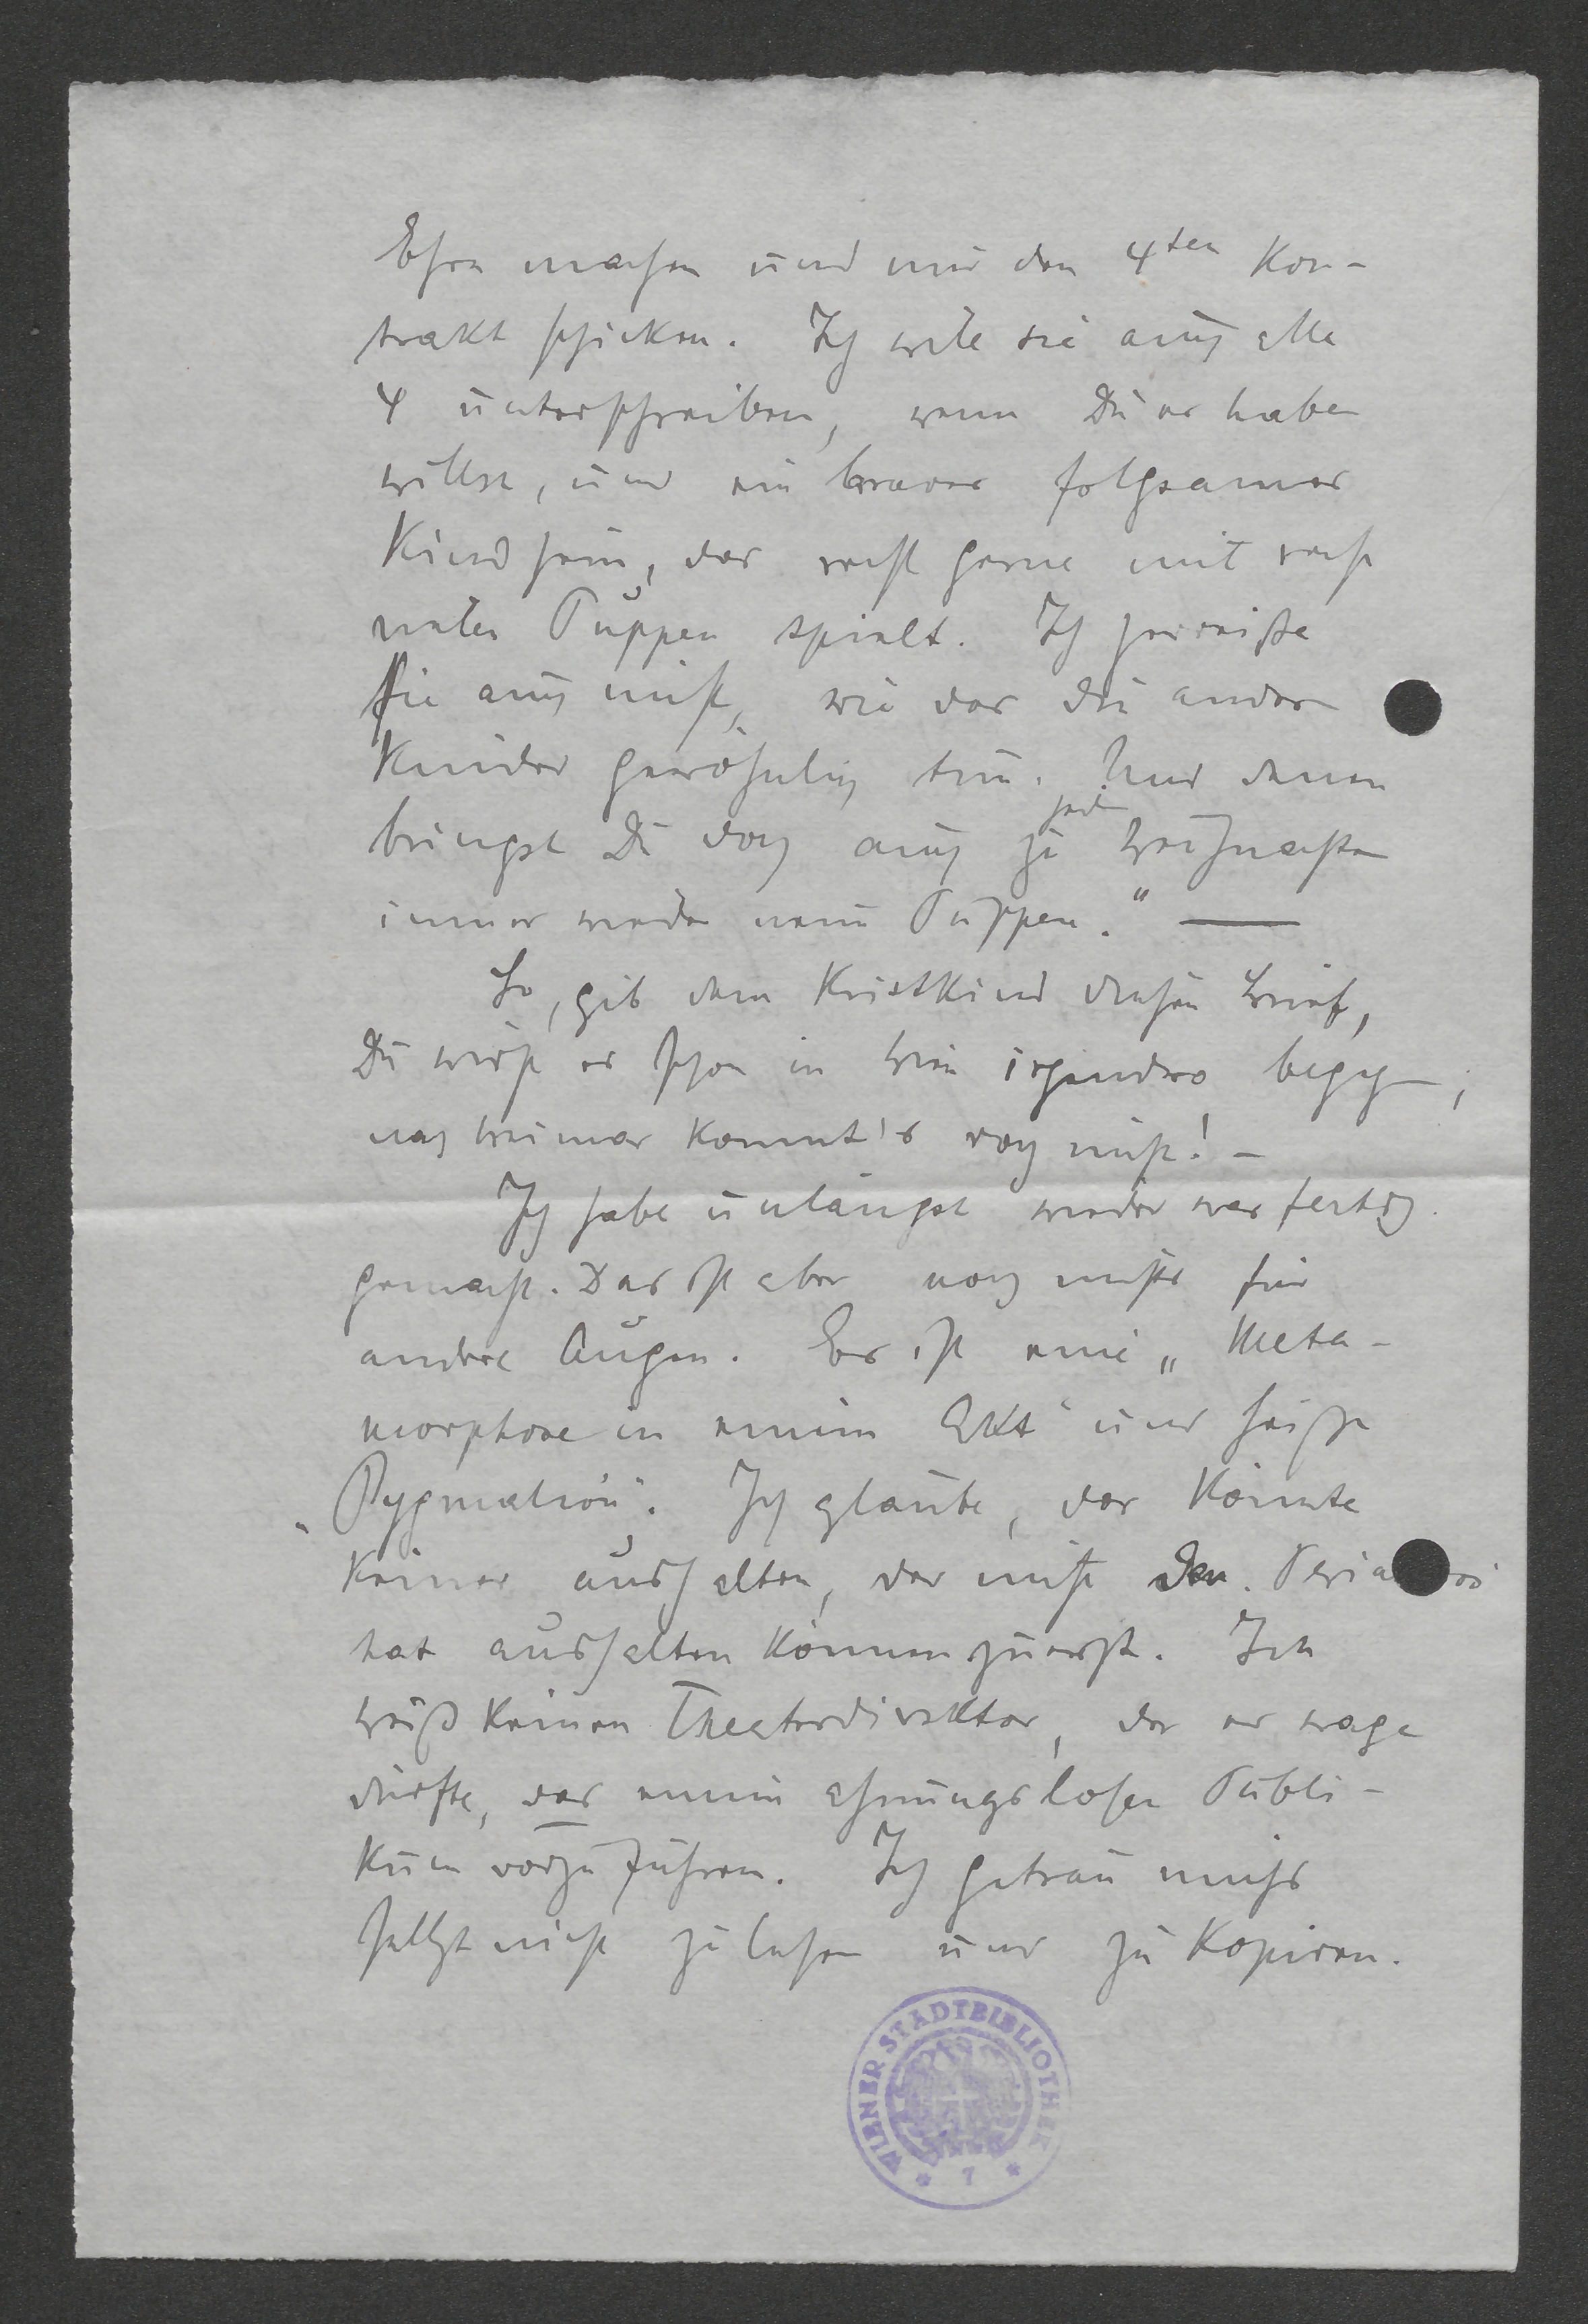 Ehre machen und mir den 4ten Kon-
trakt schicken. Ich will sie auch alle
4 unterschreiben, wenn Du es haben
willst, und ein braves folgsames
Kind sein, das recht gerne mit recht
vielen Puppen spielt. Ich zerreiße
sie auch nicht, wie das die andern
Kinder gewöhnlich tun. Und denen
bringst Du doch auch zu jeden Weihnachten
immer wieder neue Puppen." —
So, gib dem Kristkind diesen Brief,
Du wirst es schon in Wien irgendwo begegnen;
nach Weimar kommt's doch nicht! –
Ich habe unlängst wieder was fertig
gemacht. Das ist aber noch nichts für
andere Augen. Es ist eine „Meta-
morphose in einem Akt" und heißt
„Pygmalion". Ich glaube, das könnte
keiner aushalten, der nicht den
hat aushalten können zuerst. Ich
weiß keinen Theaterdirektor, der es wagen
dürfte, das einem ahnungslosen Publi-
kum vorzuführen. Ich getrau michs
selbst nicht zu lesen und zu kopiren.
WIENER STADTBIBLIOTHEK
* 7 *